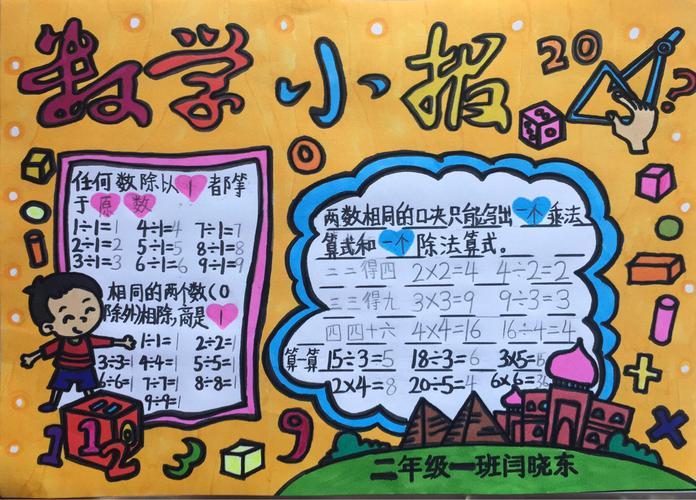 数学小报
20
?
0
任何数除以1都等
于原数
1÷1=1 4÷1=4 7÷1=7
2÷1=2 5÷1=5 8÷1=8
3÷1=3 6÷1=6 9÷1=9
相同的两个数(0
除外)相除,商是1
1÷1=1 2÷2=1
3÷3=1 4÷4=1 5÷5=1
6÷6=1 7÷7=1 8÷8=1
9÷9=1
两数相同的口决只能写出一个乘法
算式和一个除法算式。
二二得四 2×2=4 4÷2=2
三三得九 3×3=9 9÷3=3
四四十六 4×4=16 16÷4=4
算一算 15÷3=5 18÷3=6 3×5=15
2×4=8 20÷5=4 6×6=36
+
×
1 1 2 3 9
二年级一班闫晓东